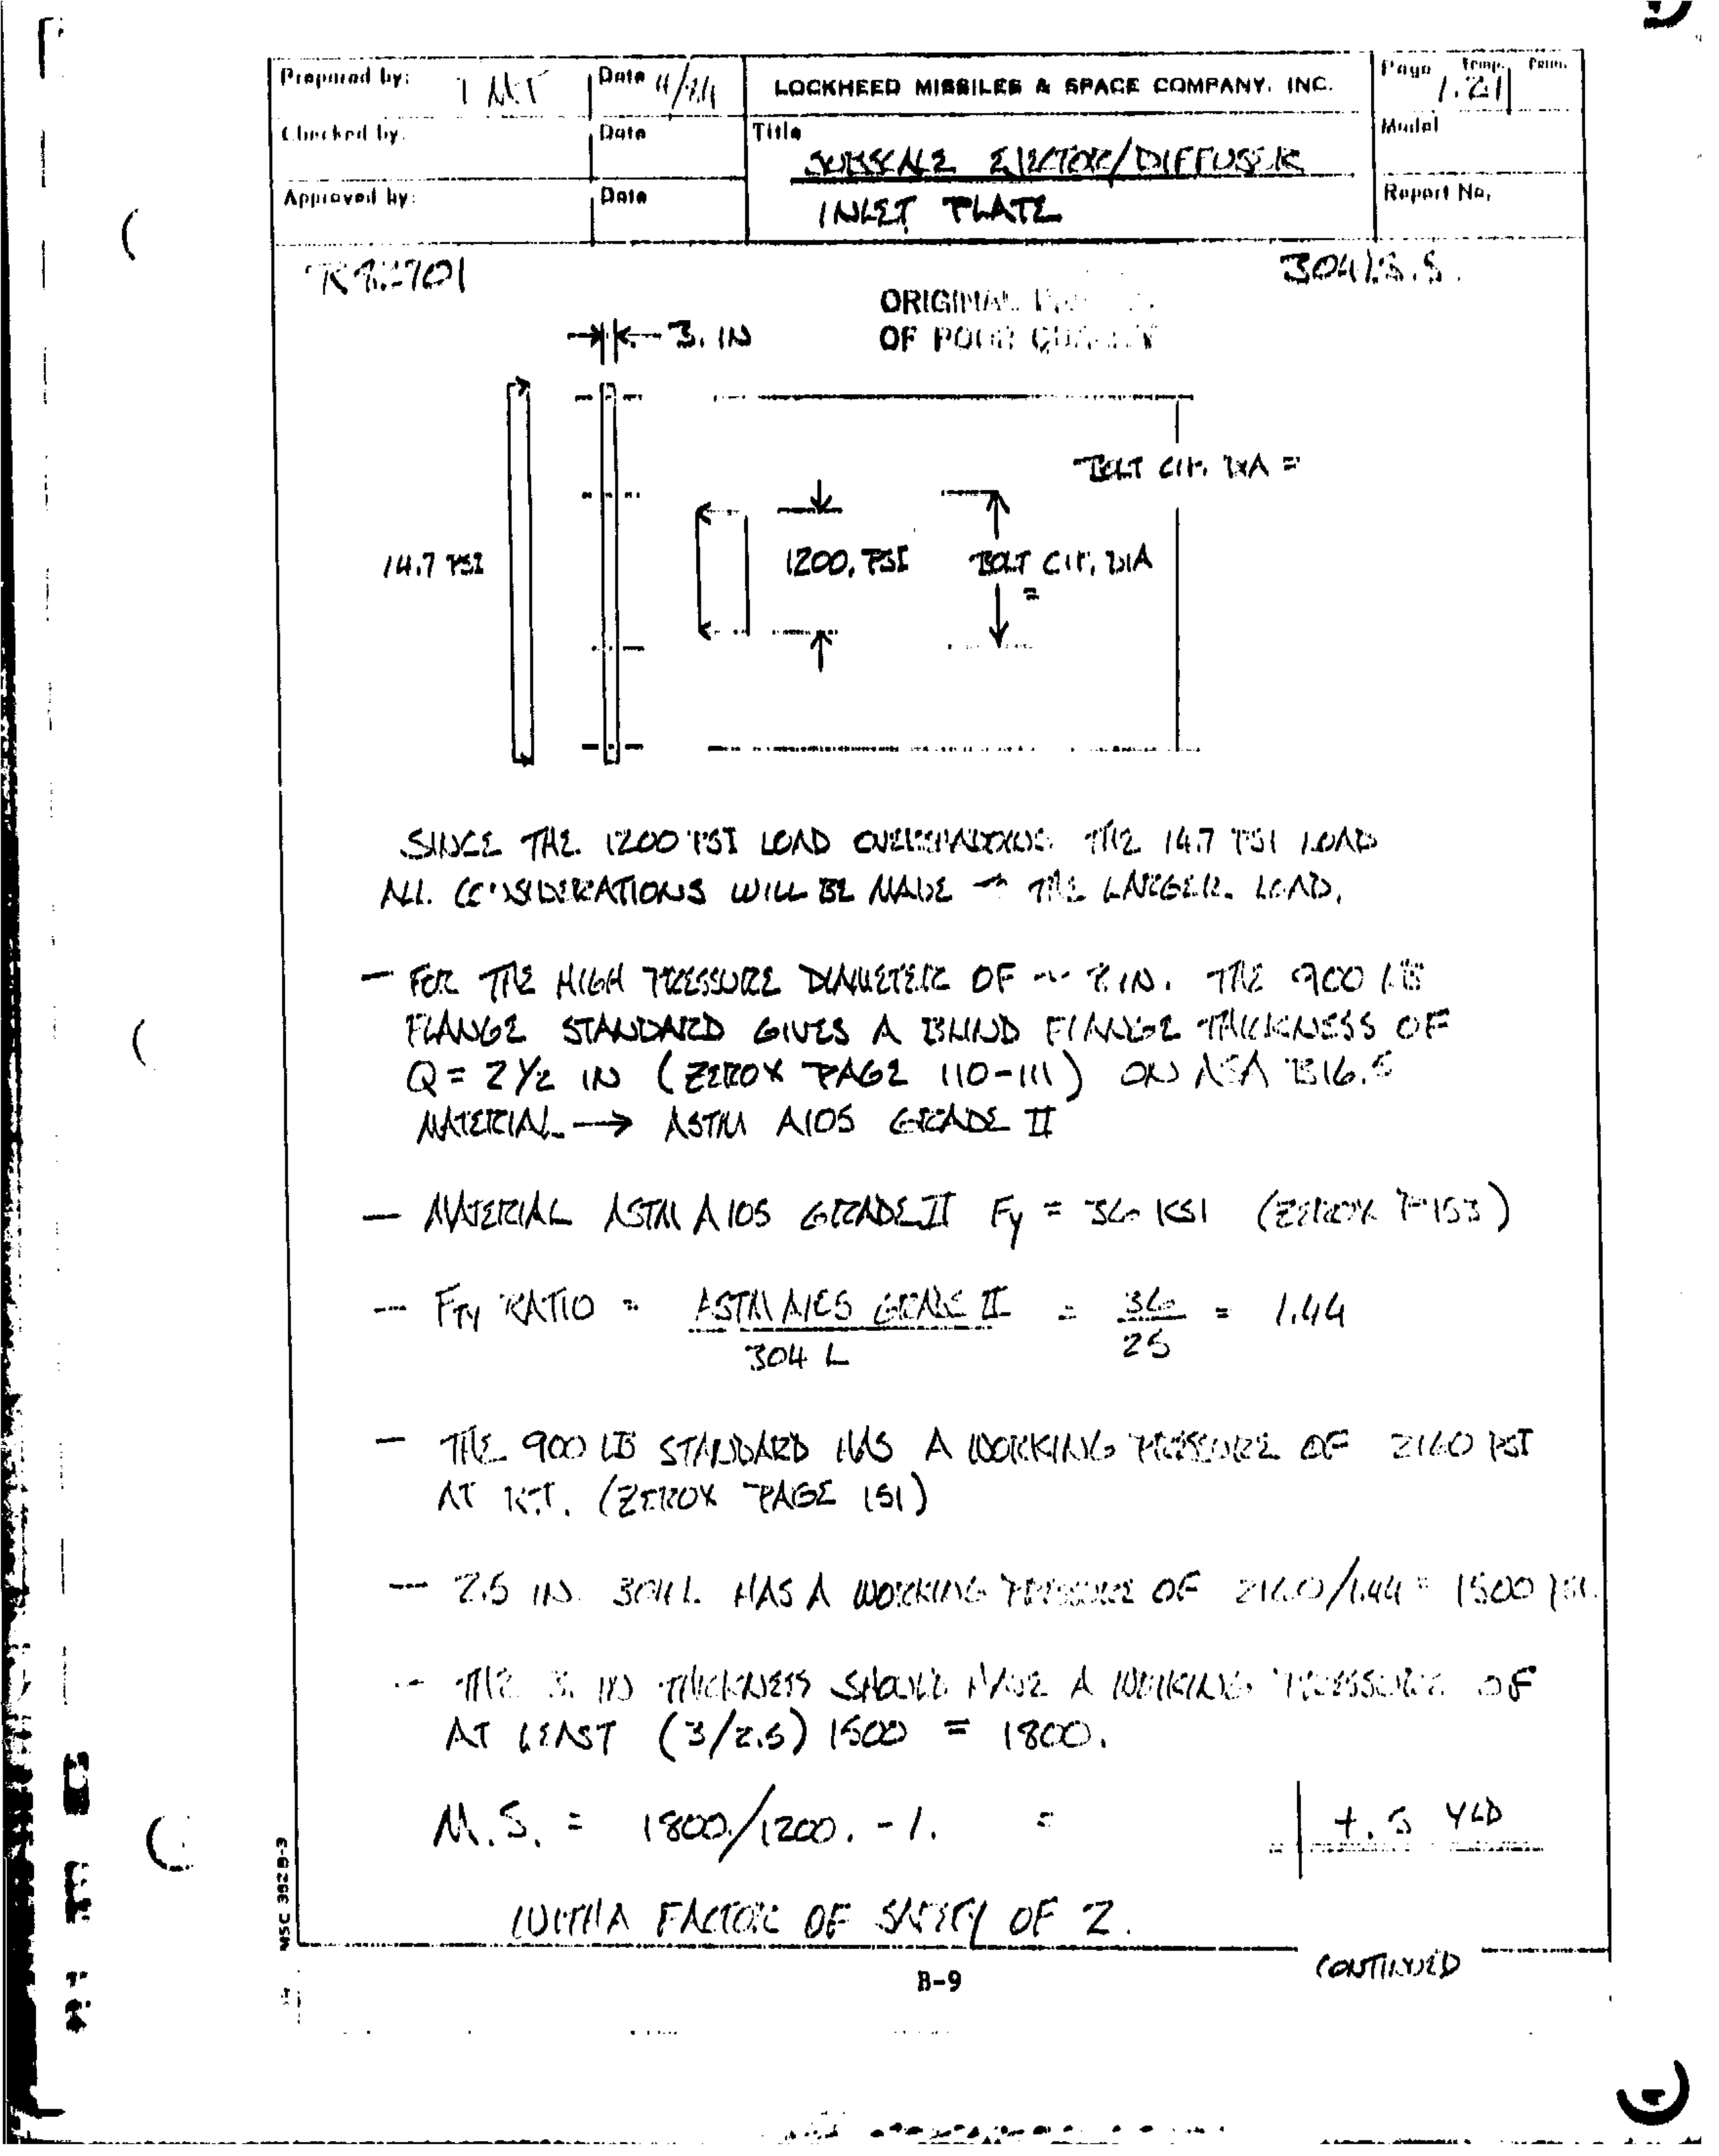 Prepared by:
Date
LOCKHEED MISSILES & SPACE COMPANY, INC.
Page Temp. Perm.
1.21
Checked by:
Date
Title
Model
SUBSCALE EJECTOR/DIFFUSER
Approved by:
Date
INLET PLATE
Report No.
R82701
304L S.S.
ORIGINAL
OF POOR QUALITY
3. IN
BOLT CIR. DIA =
14.7 PSI
1200. PSI
BOLT CIR. DIA
=
SINCE THE 1200 PSI LOAD OVERSHADOWS THE 14.7 PSI LOAD
ALL CONSIDERATIONS WILL BE MADE → THE LARGER LOAD.
— FOR THE HIGH PRESSURE DIAMETER OF ~ IN. THE 900 LB
FLANGE STANDARD GIVES A BLIND FLANGE THICKNESS OF
Q = 2 1/2 IN (ZEROX PAGE 110-111) ON ASA B16.5
MATERIAL → ASTM A105 GRADE II
— MATERIAL ASTM A105 GRADE II Fy = 36 KSI (ZEROX P153)
— FTY RATIO = ASTM A105 GRADE II / 304 L = 36 / 25 = 1.44
— THE 900 LB STANDARD HAS A WORKING PRESSURE OF 2160 PSI
AT R.T. (ZEROX PAGE 151)
— 2.5 IN. 304L HAS A WORKING PRESSURE OF 2160/1.44 = 1500 PSI.
— THE 3. IN THICKNESS SHOULD HAVE A WORKING PRESSURE OF
AT LEAST (3/2.5) 1500 = 1800.
M.S. = 1800./1200. - 1. = +.5 YLD
WITH A FACTOR OF SAFETY OF 2.
MSC 3828-3
B-9
CONTINUED